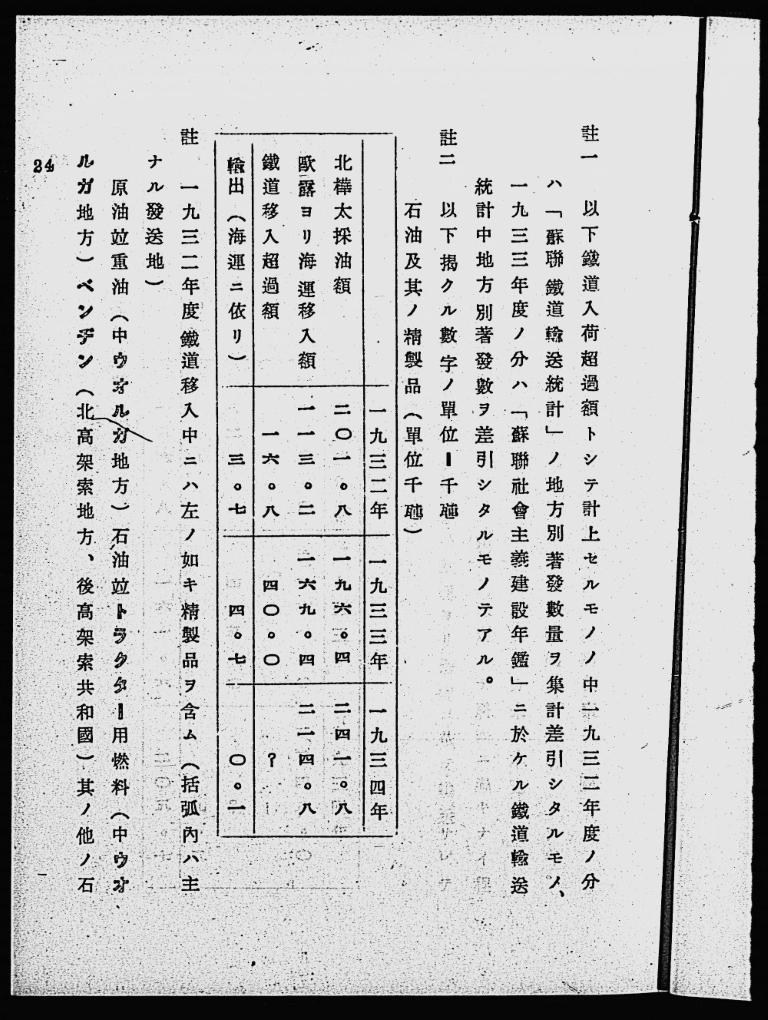 註一　以下鐵道入荷超過額トシテ計上セルモノノ中一九三二年度ノ分
ハ「蘇聯鐵道輸送統計」ノ地方別著發數量ヲ集計差引シタルモノ、
一九三三年度ノ分ハ「蘇聯社會主義建設年鑑」ニ於ケル鐵道輸送
統計中地方別著發數ヲ差引シタルモノテアル。
註二　以下揭クル數字ノ單位ー千瓲
石油及其ノ精製品（單位千瓲）
一九三二年　一九三三年　一九三四年
北樺太採油額　二〇一。八　一九六。四　二四一。八
歐露ヨリ海運移入額　一一三。二　一六九。四　二一四。八
鐵道移入超過額　一六。八　四〇。〇　？
輸出（海運ニ依リ）　三。七　四。七　〇。一
註　一九三二年度鐵道移入中ニハ左ノ如キ精製品ヲ含ム（括弧內ハ主
ナル發送地）
原油竝重油（中ウオルガ地方）石油竝トラクター用燃料（中ウオ
ルガ地方）ベンヂン（北高架索地方、後高架索共和國）其ノ他ノ石
24